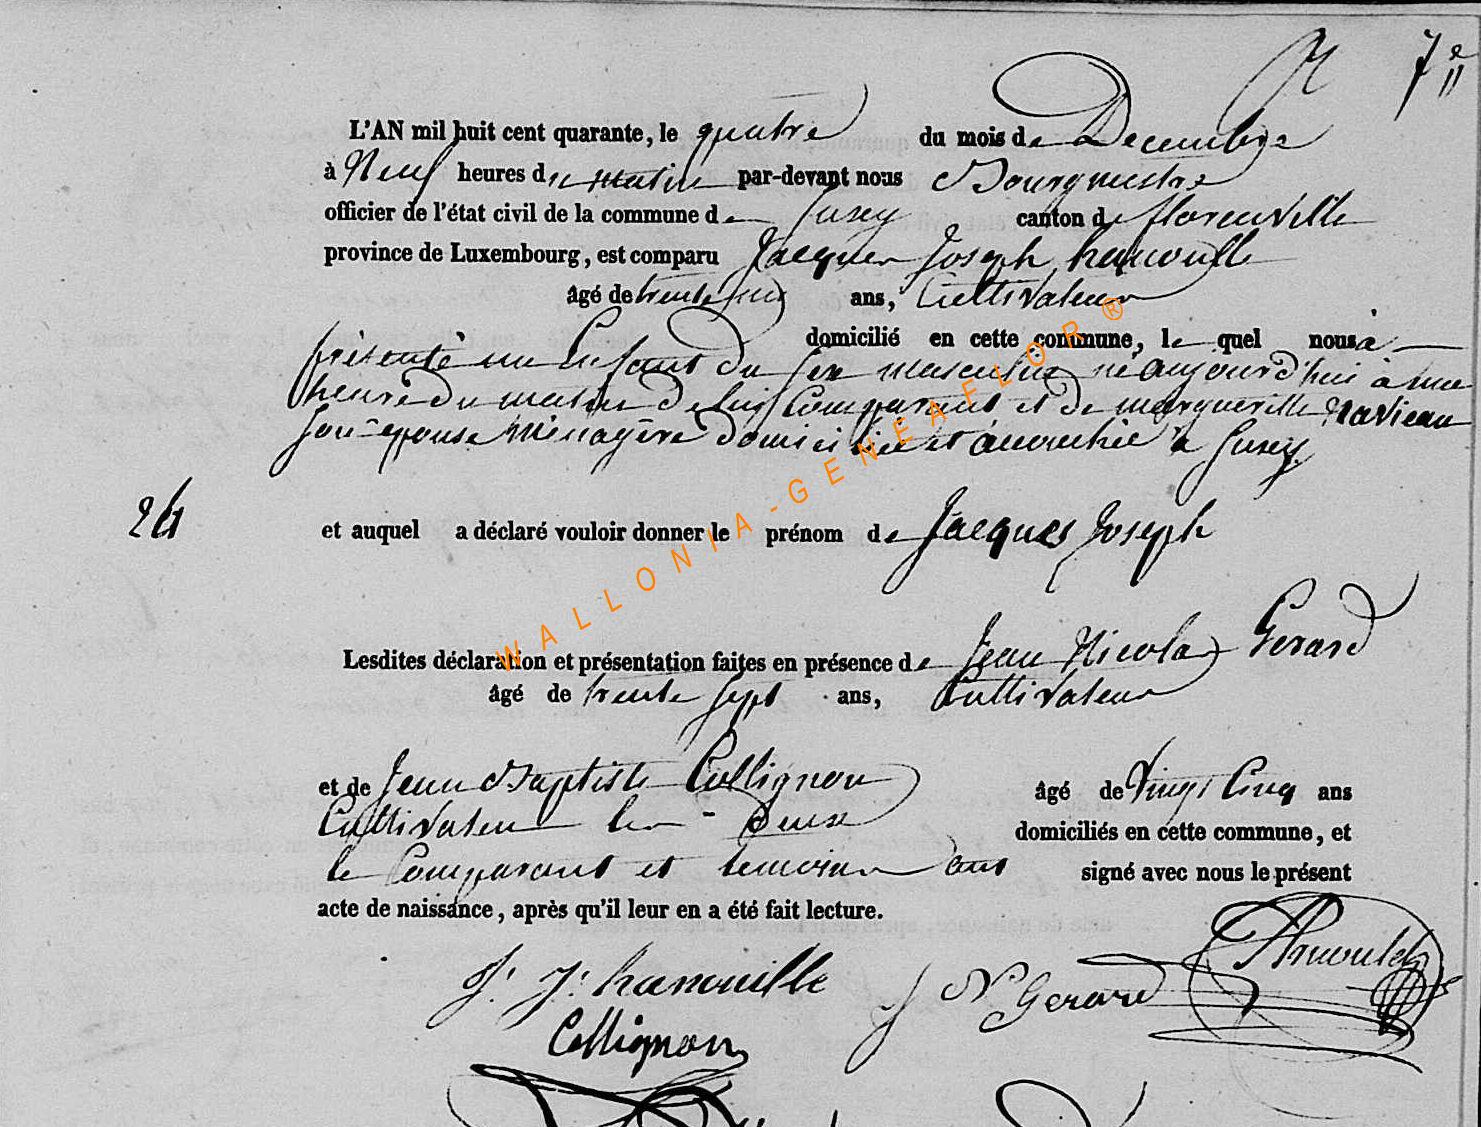 7e
11
L'AN mil huit cent quarante, le quatre du mois de Decembre
à Neuf heures du matin par-devant nous Bourgmestre
officier de l'état civil de la commune de Jusey canton de florenville
province de Luxembourg, est comparu Jacques Joseph hanouille
âgé de trente un ans, Cultivateur
domicilié en cette commune, le quel nous à
présenté un Enfant du sexe masculin né aujourd'hui à une
heure du matin de lui Comparant et de marguerille navieau
son épouse Ménagère domiciliée et accouchée à Jusey
24 et auquel a déclaré vouloir donner le prénom de Jacques Joseph
Lesdites déclaration et présentation faites en présence de Jean Nicolas Gerard
âgé de trente sept ans, Cultivateur
et de Jean Baptiste Collignon âgé de Vingt Cinq ans
Cultivateur les deux domiciliés en cette commune, et
le Comparant et temoins ont signé avec nous le présent
acte de naissance, après qu'il leur en a été fait lecture.
J. J. hanouille J N Gerard
Collignon
WALLONIA-GENEAFLOR®